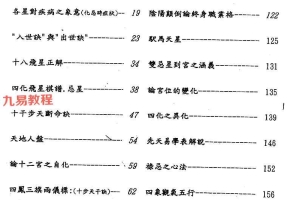 各星對疾病之象意(化忌時訣) 19
"入世訣"與"出世訣" 23
十八飛星正解 34
四化飛星棋譜、忌星 38
十干步天斷命訣 47
天地人盤 54
論十二宮之自化 59
四鳳三旗兩儀標:(十步天干訣) 62
陰陽顛倒論終身職業格 122
馭馬天星 125
雙忌星到宮之涵義 131
論宮位的變化 135
四化之異化 139
先天易學表解說 146
祿忌之心法 152
四象觀氣五行 156
九易教程